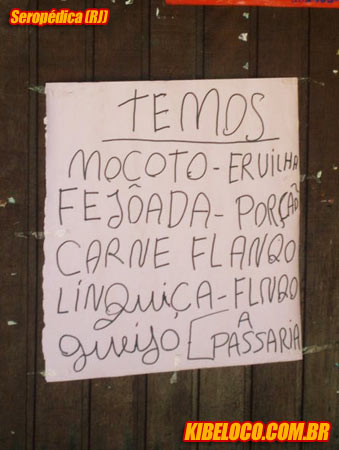 Seropédica (RJ)
TEMOS
MOCOTO - ERUILHA
FEJÔADA - PORÇÃO
CARNE FLANQO
LINQUIÇA - FLNQO
queijo [A PASSARIA
KIBELOCO.COM.BR